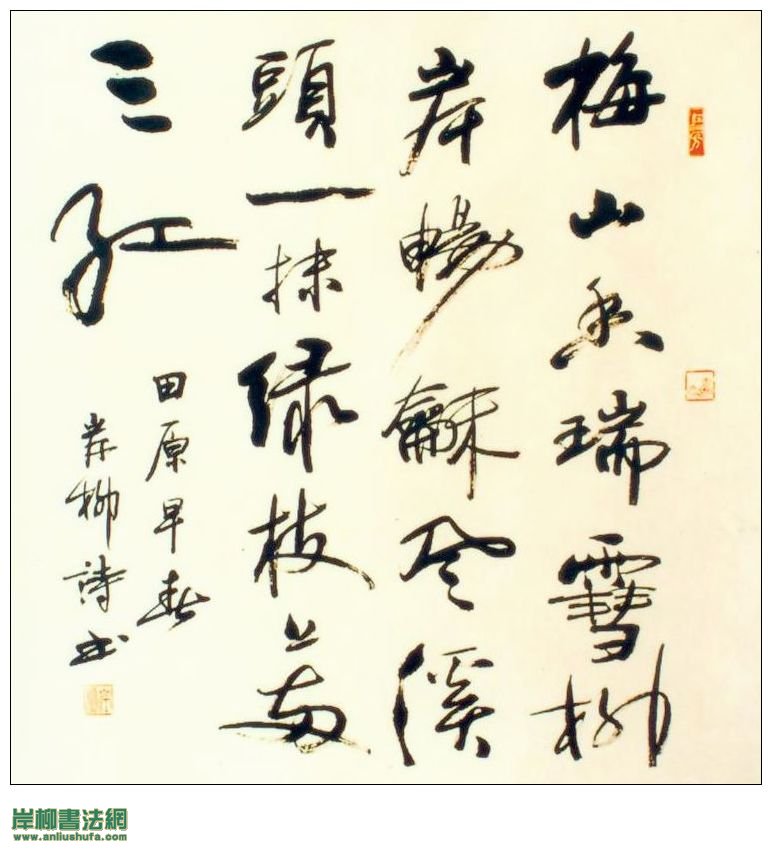 梅山香瑞雪柳
岸暢龢風溪
頭一抹緑枝上兩
三紅
田原早春
岸柳詩書
岸柳書法網
www.anliushufa.com